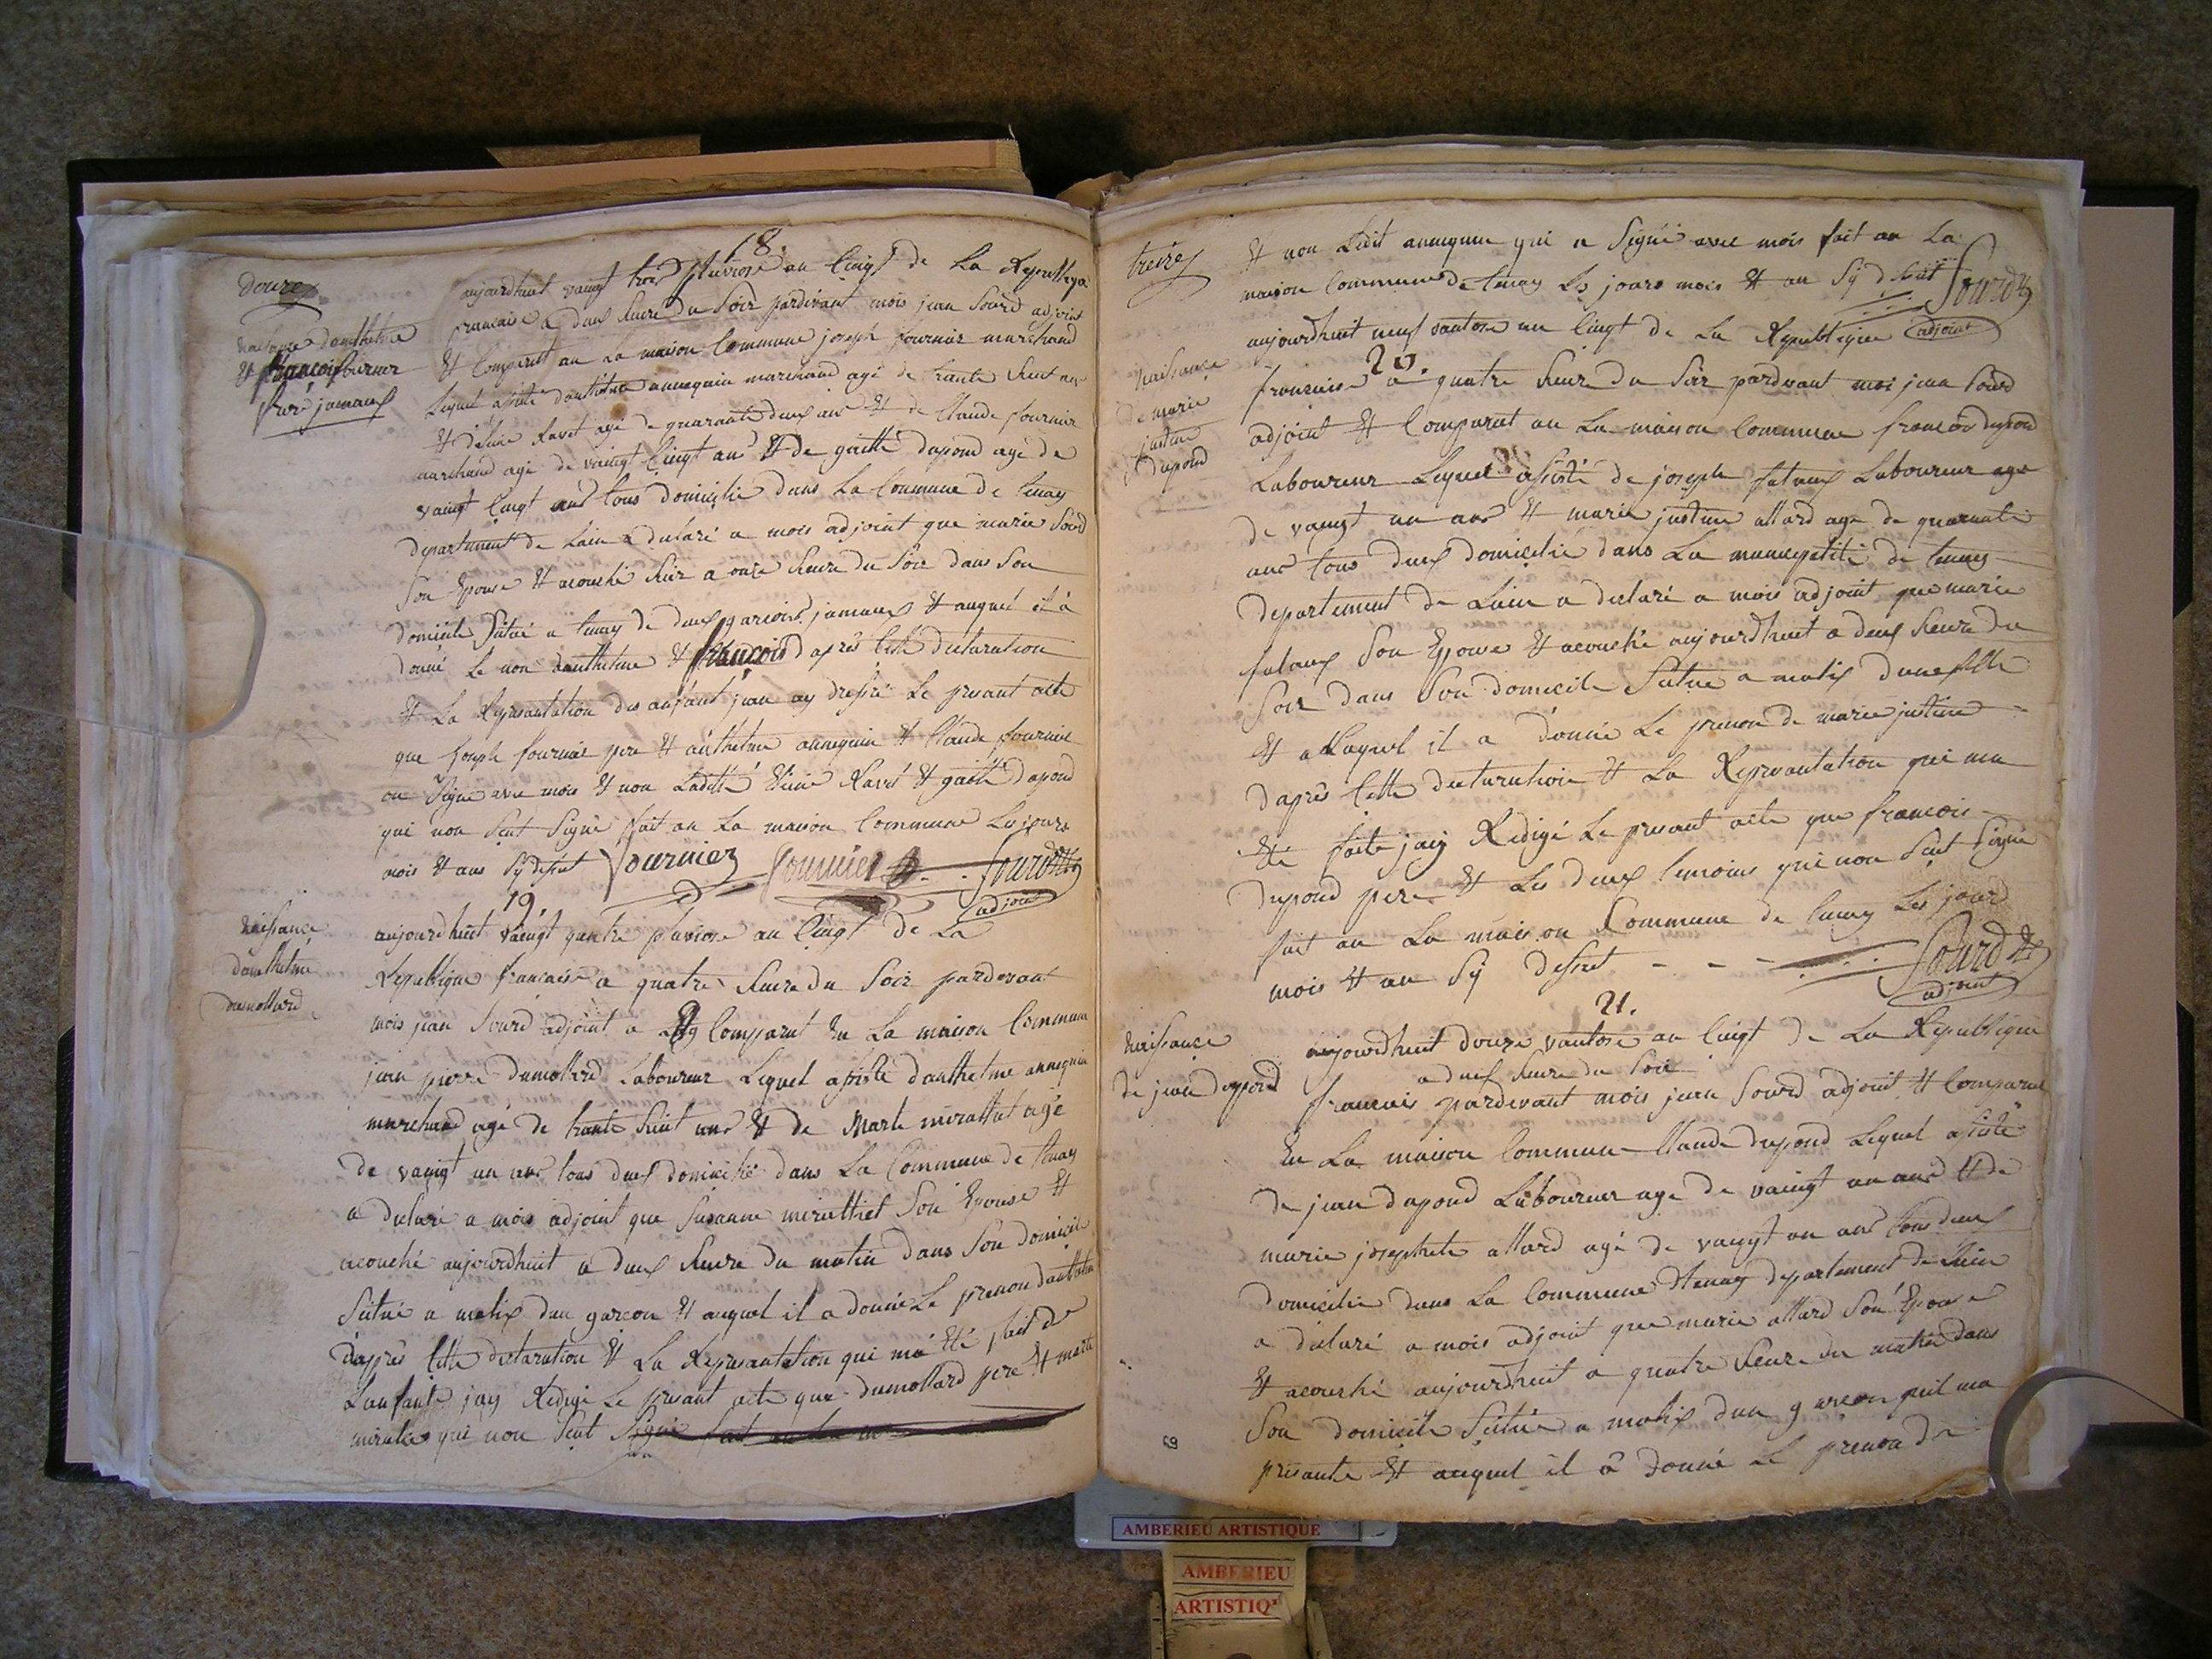 douze
18.
naissance danthelme
& françois fournier
frere jumaux
aujourdhuit vaingt trois pluviose an Cinqt de La Republique
francaise a deux heure du Soir pardevant mois jean Sourd adjoint
& Comparut an La maison Commune joseph fournier marchand
Lequel assisté danthelme annequin marchand agé de trante huit ans
agé de quarante deux ans & de Claude fournier
marchand agé de vaingt Cinqt ans & de dapond agé de
vaingt Cinqt ans tous domicilié dans La Commune de tenay
departement de Lain a declaré a mois adjoint que marie Sourd
Son Epouse & acouché hier a onze heure du Soir dans Son
domicile Situé a tenay de deux garcons jumaux & auquel il a
donné Le non danthelme & françois daprès Cette declaration
& La Represantation des anfant jean ay dressé Le presant acte
que joseph fournier pere & anthelme annequin & Claude fournier
on Signé avec mois & non Laditte & dapond
qui non Seut Signé fait an La maison Commune Les jours
mois & ans Sy desut Fournier fournier Sourd
adjoint
19.
naissance
danthelme
dumollard
aujourdhuit vaingt quatre pluviose an Cinqt de La
Republique francaise a quatre heure du Soir pardevant
mois jean Sourd adjoint a Comparut En La maison Commune
jean pierre dumollard Laboureur Lequel assisté danthelme annequin
marchand agé de trante huit ans & de Marte agé
de vaingt un ans tous deux domicilié dans La Commune de tenay
a declaré a mois adjoint que Susanne Son Epouse &
acouché aujourdhuit a deux heure du matin dans Son domicile
Situé a malix dun garcon & auquel il a donné Le prenon danthelme
daprès Cette declaration & La Represantation qui ma Eté fait de
Lanfant jay Redigé Le presant acte que dumollard pere & marte
qui non Seut Signé fait an La
treize
& non Ledit annequin qui a Signé avec mois fait an La
maison Commune de tenay Les jours mois & an Sy desut Sourd
adjoint
20.
naissance
de marie
justine
dupond
aujourdhuit neuf vantose an Cinqt de La Republique
francaise a quatre heure du Soir pardevant moi jean Sourd
adjoint & Comparut an La maison Commune francois dupond
Laboureur Lequel assisté de joseph Laboureur agé
de vaingt un ans & marie justine allard agé de quarante
ans tous deux domicilié dans La municipalité de tenay
departement de Lain a declaré a mois adjoint que marie
Son Epouse & acouché aujourdhuit a deux heure du
Soir dans Son domicile Situé a malix dune fille
& a Laquel il a donné Le prenon de marie justine
daprès Cette declaration & La Represantation qui ma
Eté faite jay Redigé Le presant acte que francois
dupond pere & Les deux temoins qui non Seut Signé
fait an La maison Commune de tenay Les jour
mois & an Sy desut - - - Sourd
adjoint
21.
naissance
de jean dupond
aujourdhuit douze vantose an Cinqt de La Republique
a deux heure du Soir
francais pardevant mois jean Sourd adjoint & Comparut
En La maison Commune Claude dupond Lequel assisté
de jean dapond Laboureur agé de vaingt un ans & de
marie josephete allard agé de vaingt un ans tous deux
domicilié dans La Commune dtenay departement de Lain
a declaré a mois adjoint que marie allard Son Epouse
& acouché aujourdhuit a quatre heure du matin dans
Son domicile Situé a malix dun garcon quil ma
presanté & auquel il a donné Le prenon de
69
AMBERIEU ARTISTIQUE
AMBERIEU
ARTISTIQ